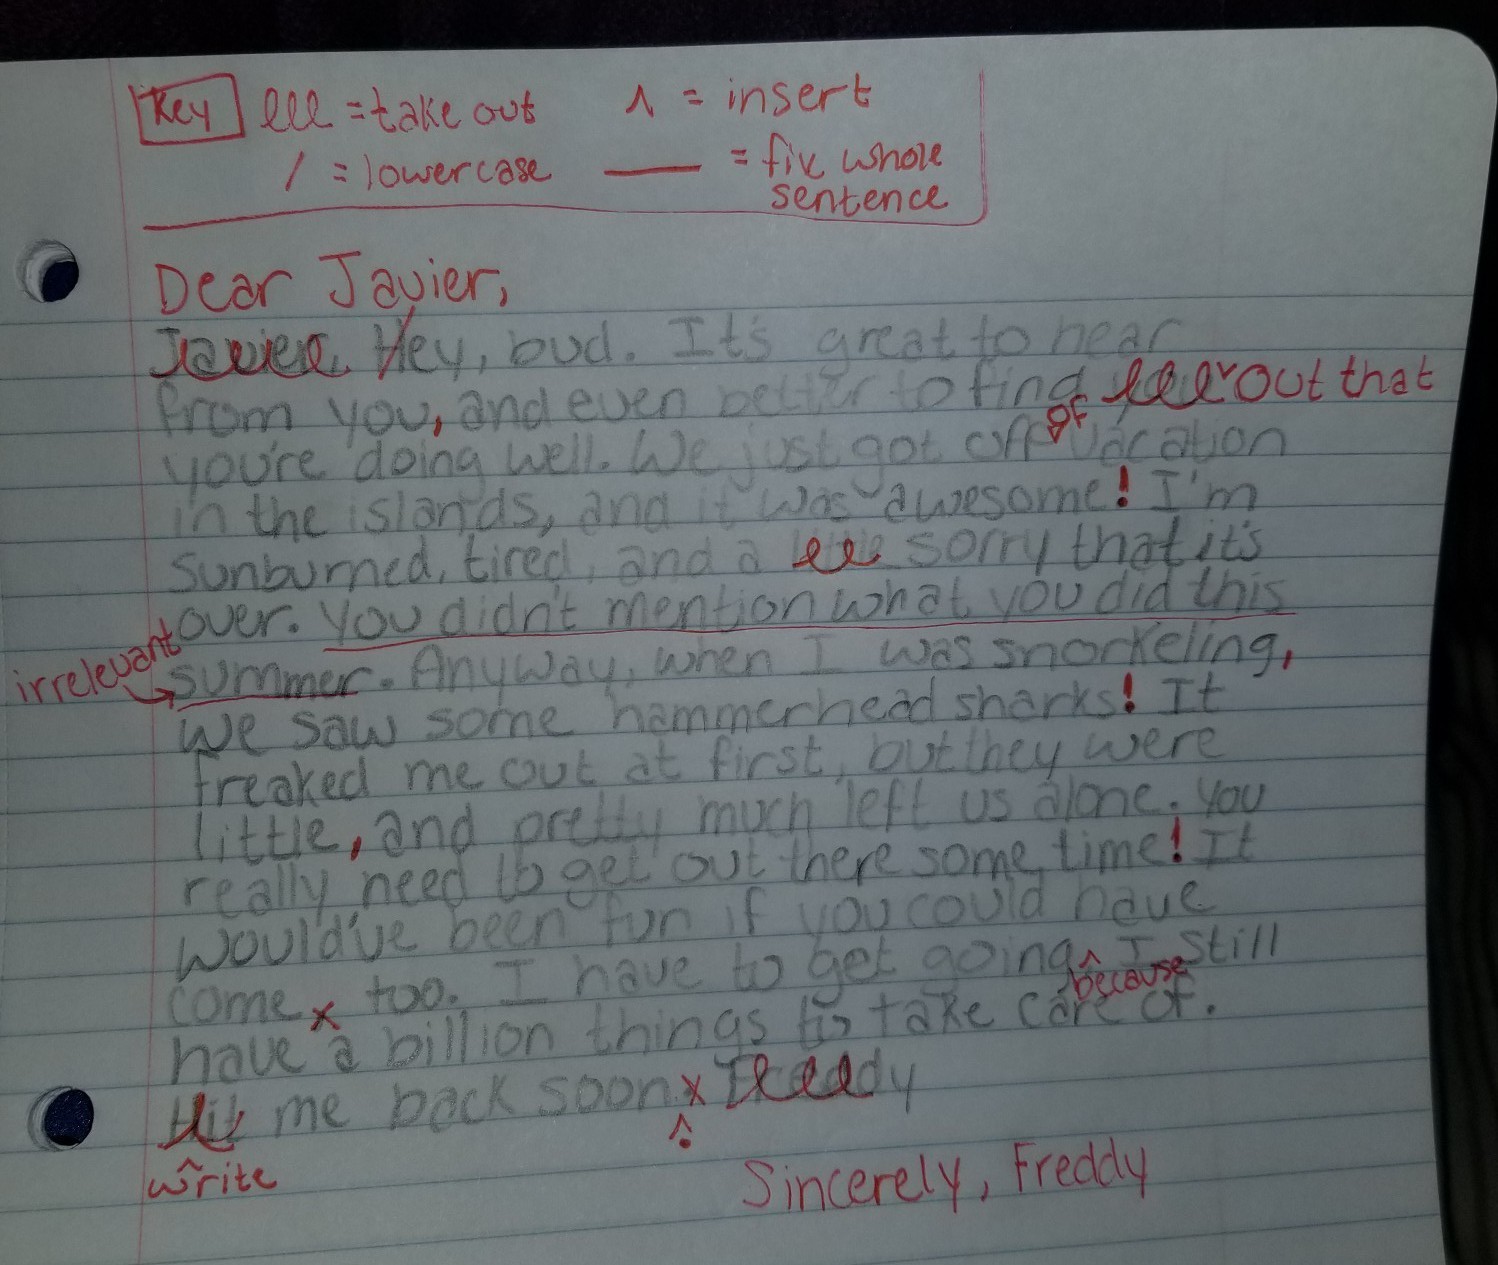 Key lll = take out ʌ = insert
/ = lowercase ___ = fix whole
sentence
Dear Javier,
Javier. Hey, bud. It's great to hear
from you, and even better to find out that
of
you're doing well. We just got off vacation
in the islands, and it was awesome! I'm
sunburned, tired, and a little sorry that it's
over. You didn't mention what you did this
irrelevant
summer. Anyway, when I was snorkeling,
we saw some hammerhead sharks! It
freaked me out at first, but they were
little, and pretty much left us alone. You
really need to get out there some time! It
would've been fun if you could have
come too. I have to get going ʌ I still
because
have a billion things to take care of.
Hit me back soon. Freddy
write
Sincerely, Freddy